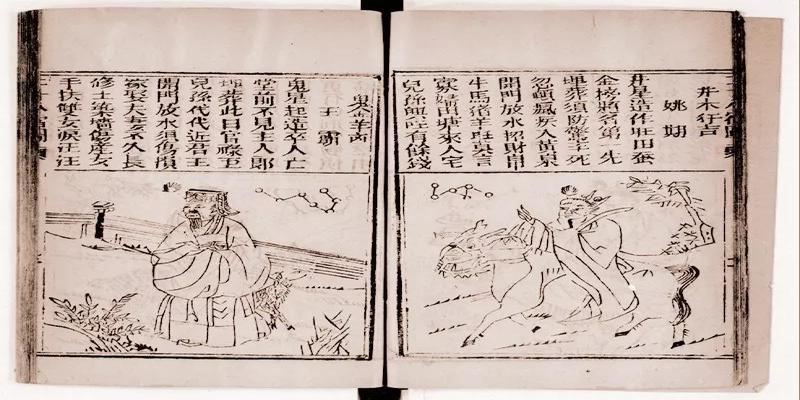 井木犴吉
姚期
井星造作旺田蚕
金榜題名第一先
埋葬須防驚卒死
忽癲瘋疾入黄泉
開門放水招財帛
牛馬猪羊旺莫言
寡婦田塘來入宅
兒孫興旺有餘錢
鬼金羊凶
王霸
鬼星起造卒人亡
堂前不見主人郎
埋葬此日官祿至
兒孫代代近君王
開門放水須傷殞
嫁娶夫妻不久長
修土築墻傷産女
手扶雙女淚汪汪